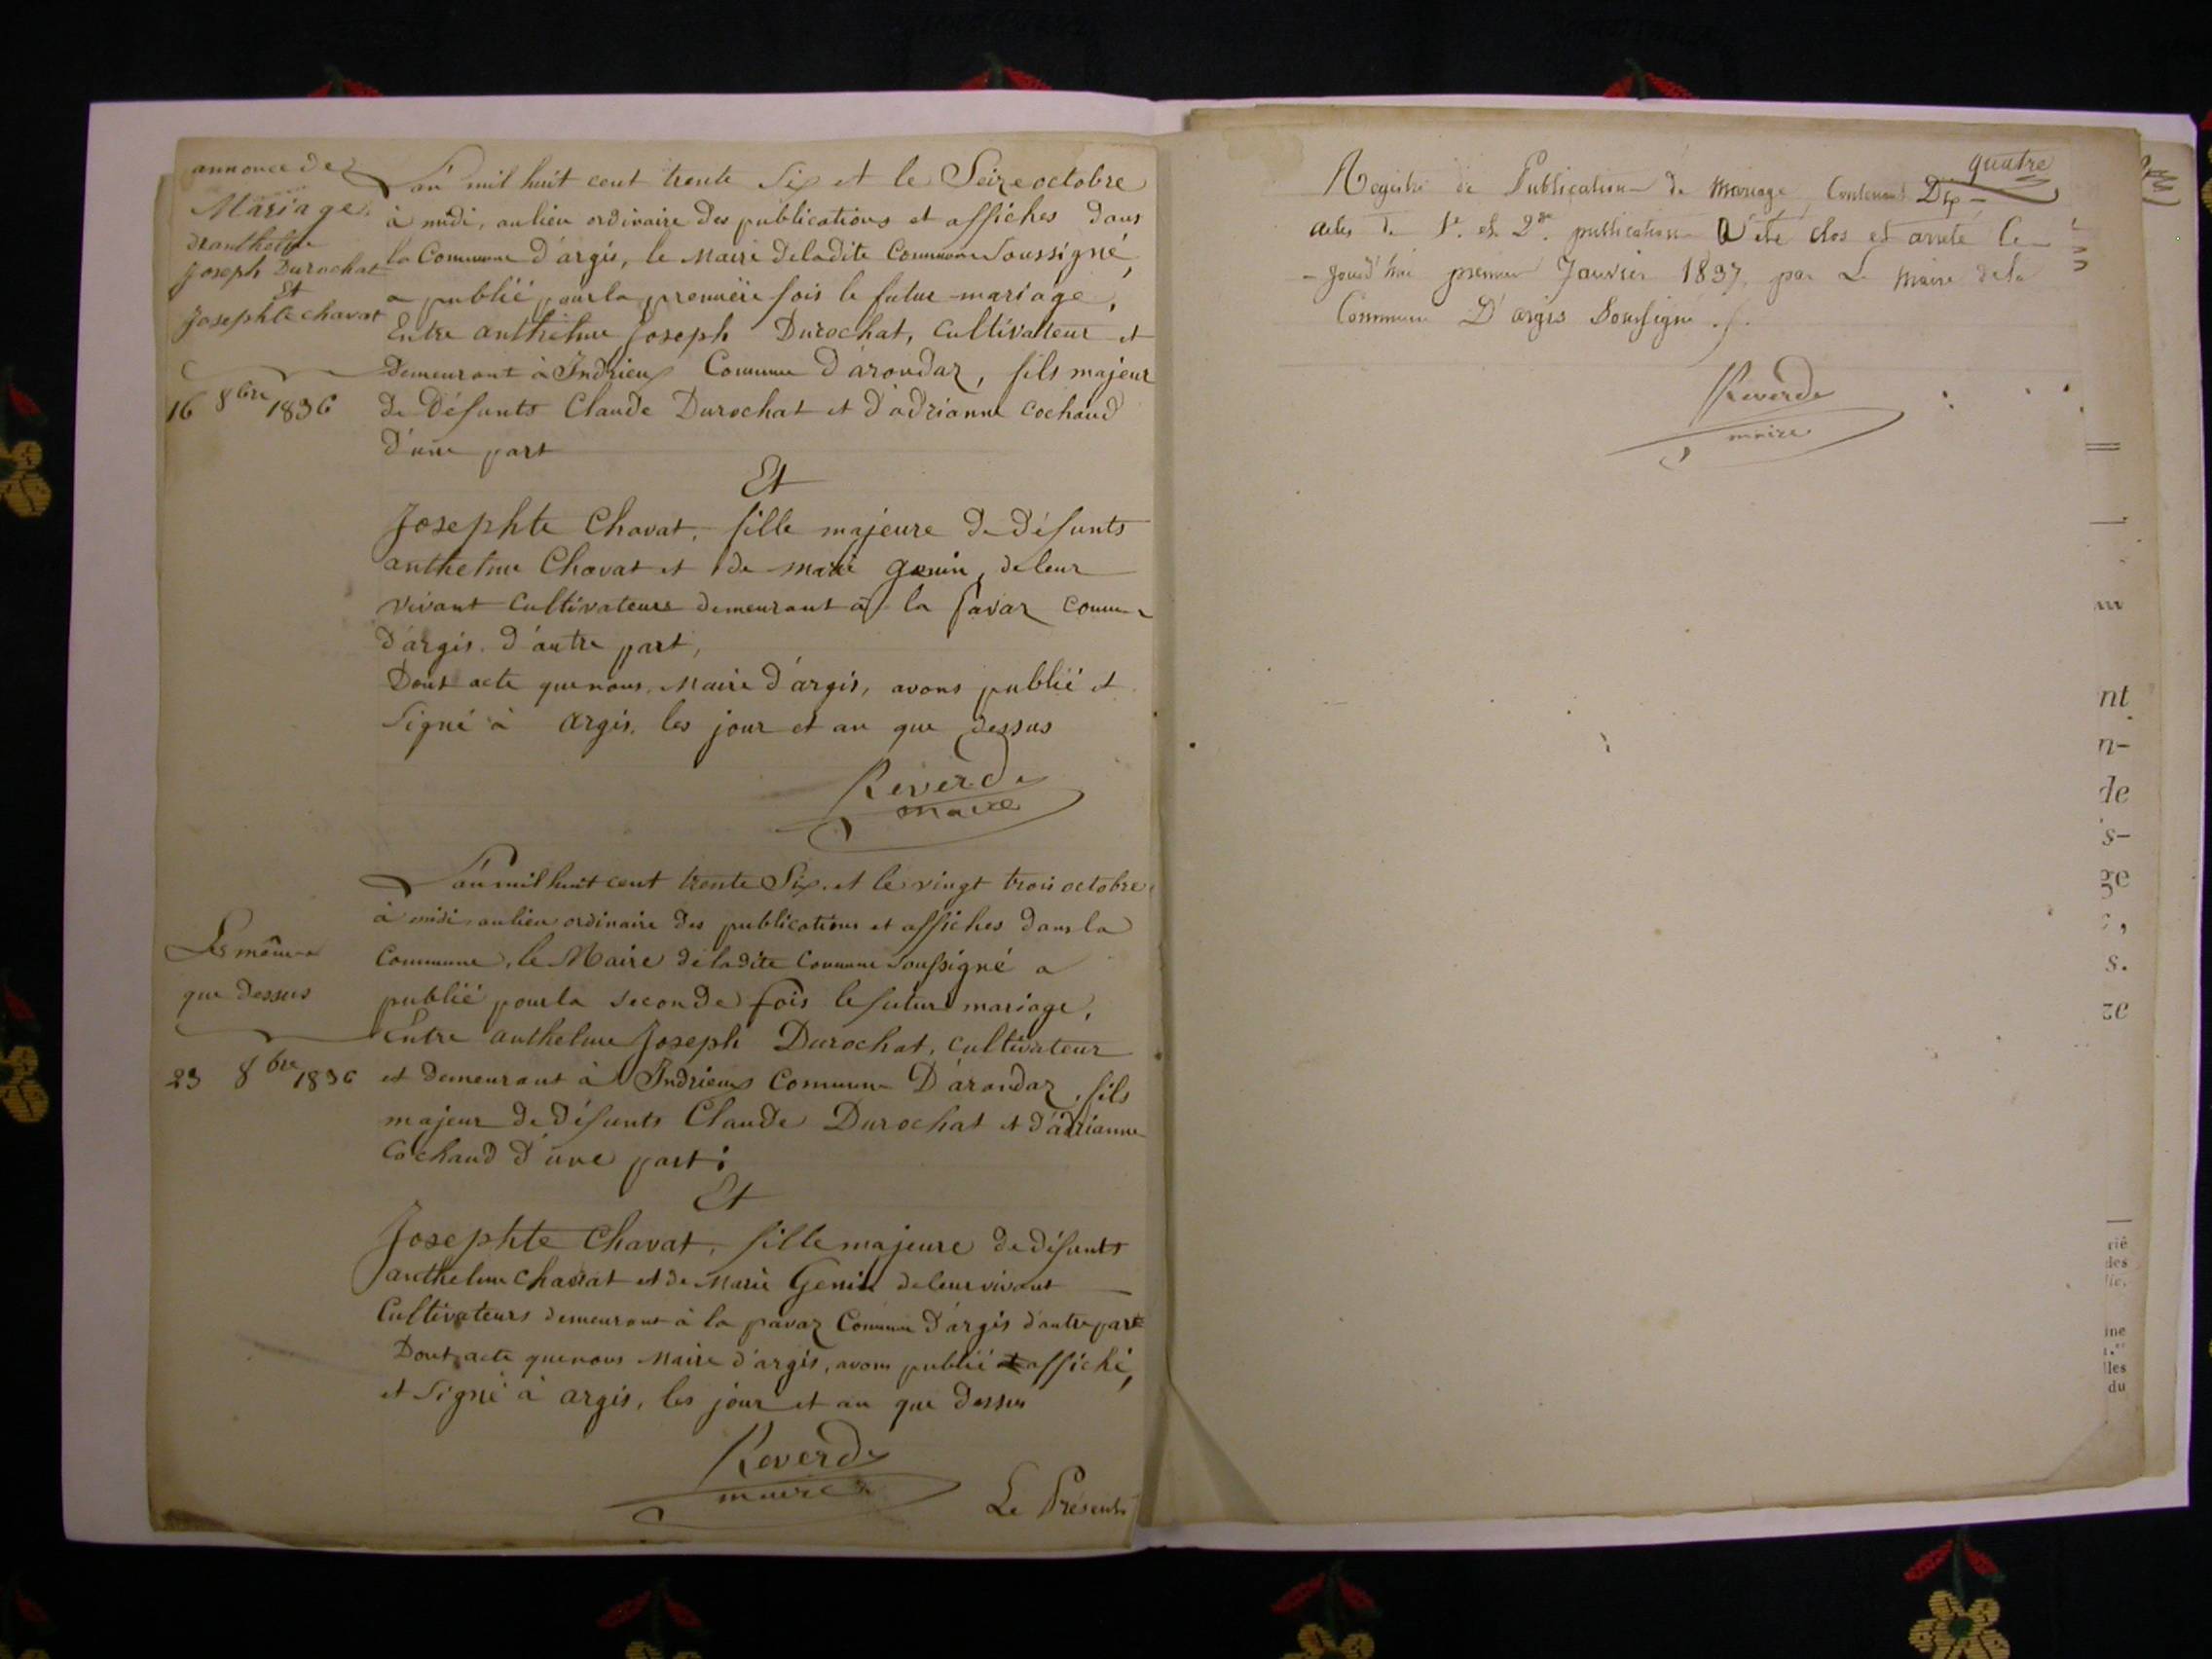 annonce de
Mariage
d'anthelme
Joseph Durochat
et
Josephte Chavat
16 8bre 1836
L'an mil huit cent trente Six et le Seize octobre
à midi, au lieu ordinaire des publications et affiches dans
la Commune d'argis, le Maire de ladite Commune Soussigné,
a publié pour la première fois le futur mariage,
Entre anthelme Joseph Durochat, Cultivateur et
Demeurant à Indrieux Commune d'arandaz, fils majeur
de Défunts Claude Durochat et d'adrianne Cochaud
D'une part
Et
Josephte Chavat, fille majeure de défunts
anthelme Chavat et de marie genin, de leur
vivant Cultivateurs demeurant à la pavaz Commune
D'argis. d'autre part,
Dont acte que nous, Maire d'argis, avons publié et
Signé à argis, les jour et an que dessus
Reverdy
maire
Les mêmes
que dessus
23 8bre 1836
L'an mil huit cent trente Six. et le vingt trois octobre
à midi au lieu ordinaire des publications et affiches dans la
Commune, le Maire de ladite Commune Soussigné a
publié pour la seconde fois le futur mariage,
Entre anthelme Joseph Durochat, cultivateur
et demeurant à Indrieux Commune D'arandaz, fils
majeur de défunts Claude Durochat et d'adrianne
Cochaud d'une part.
Et
Josephte Chavat, fille majeure de défunts
anthelme Chavat et de Marie Genin de leur vivant
Cultivateurs demeurant à la pavaz Commune d'argis d'autre part
Dont acte que nous Maire d'argis, avons publié affiché,
et Signé à argis, les jour et an que dessus
Reverdy
maire
Le Présent
quatre
Registre de Publication de Mariage Contenant Dix
actes de 1e. et 2de. publication a été clos et arrêté ce
jourd'hui premier Janvier 1837, par Le Maire de la
Commune D'argis Soussigné
Reverdy
maire
nt
n-
de
s-
ge
s.
ze
rié
des
ine
lles
du